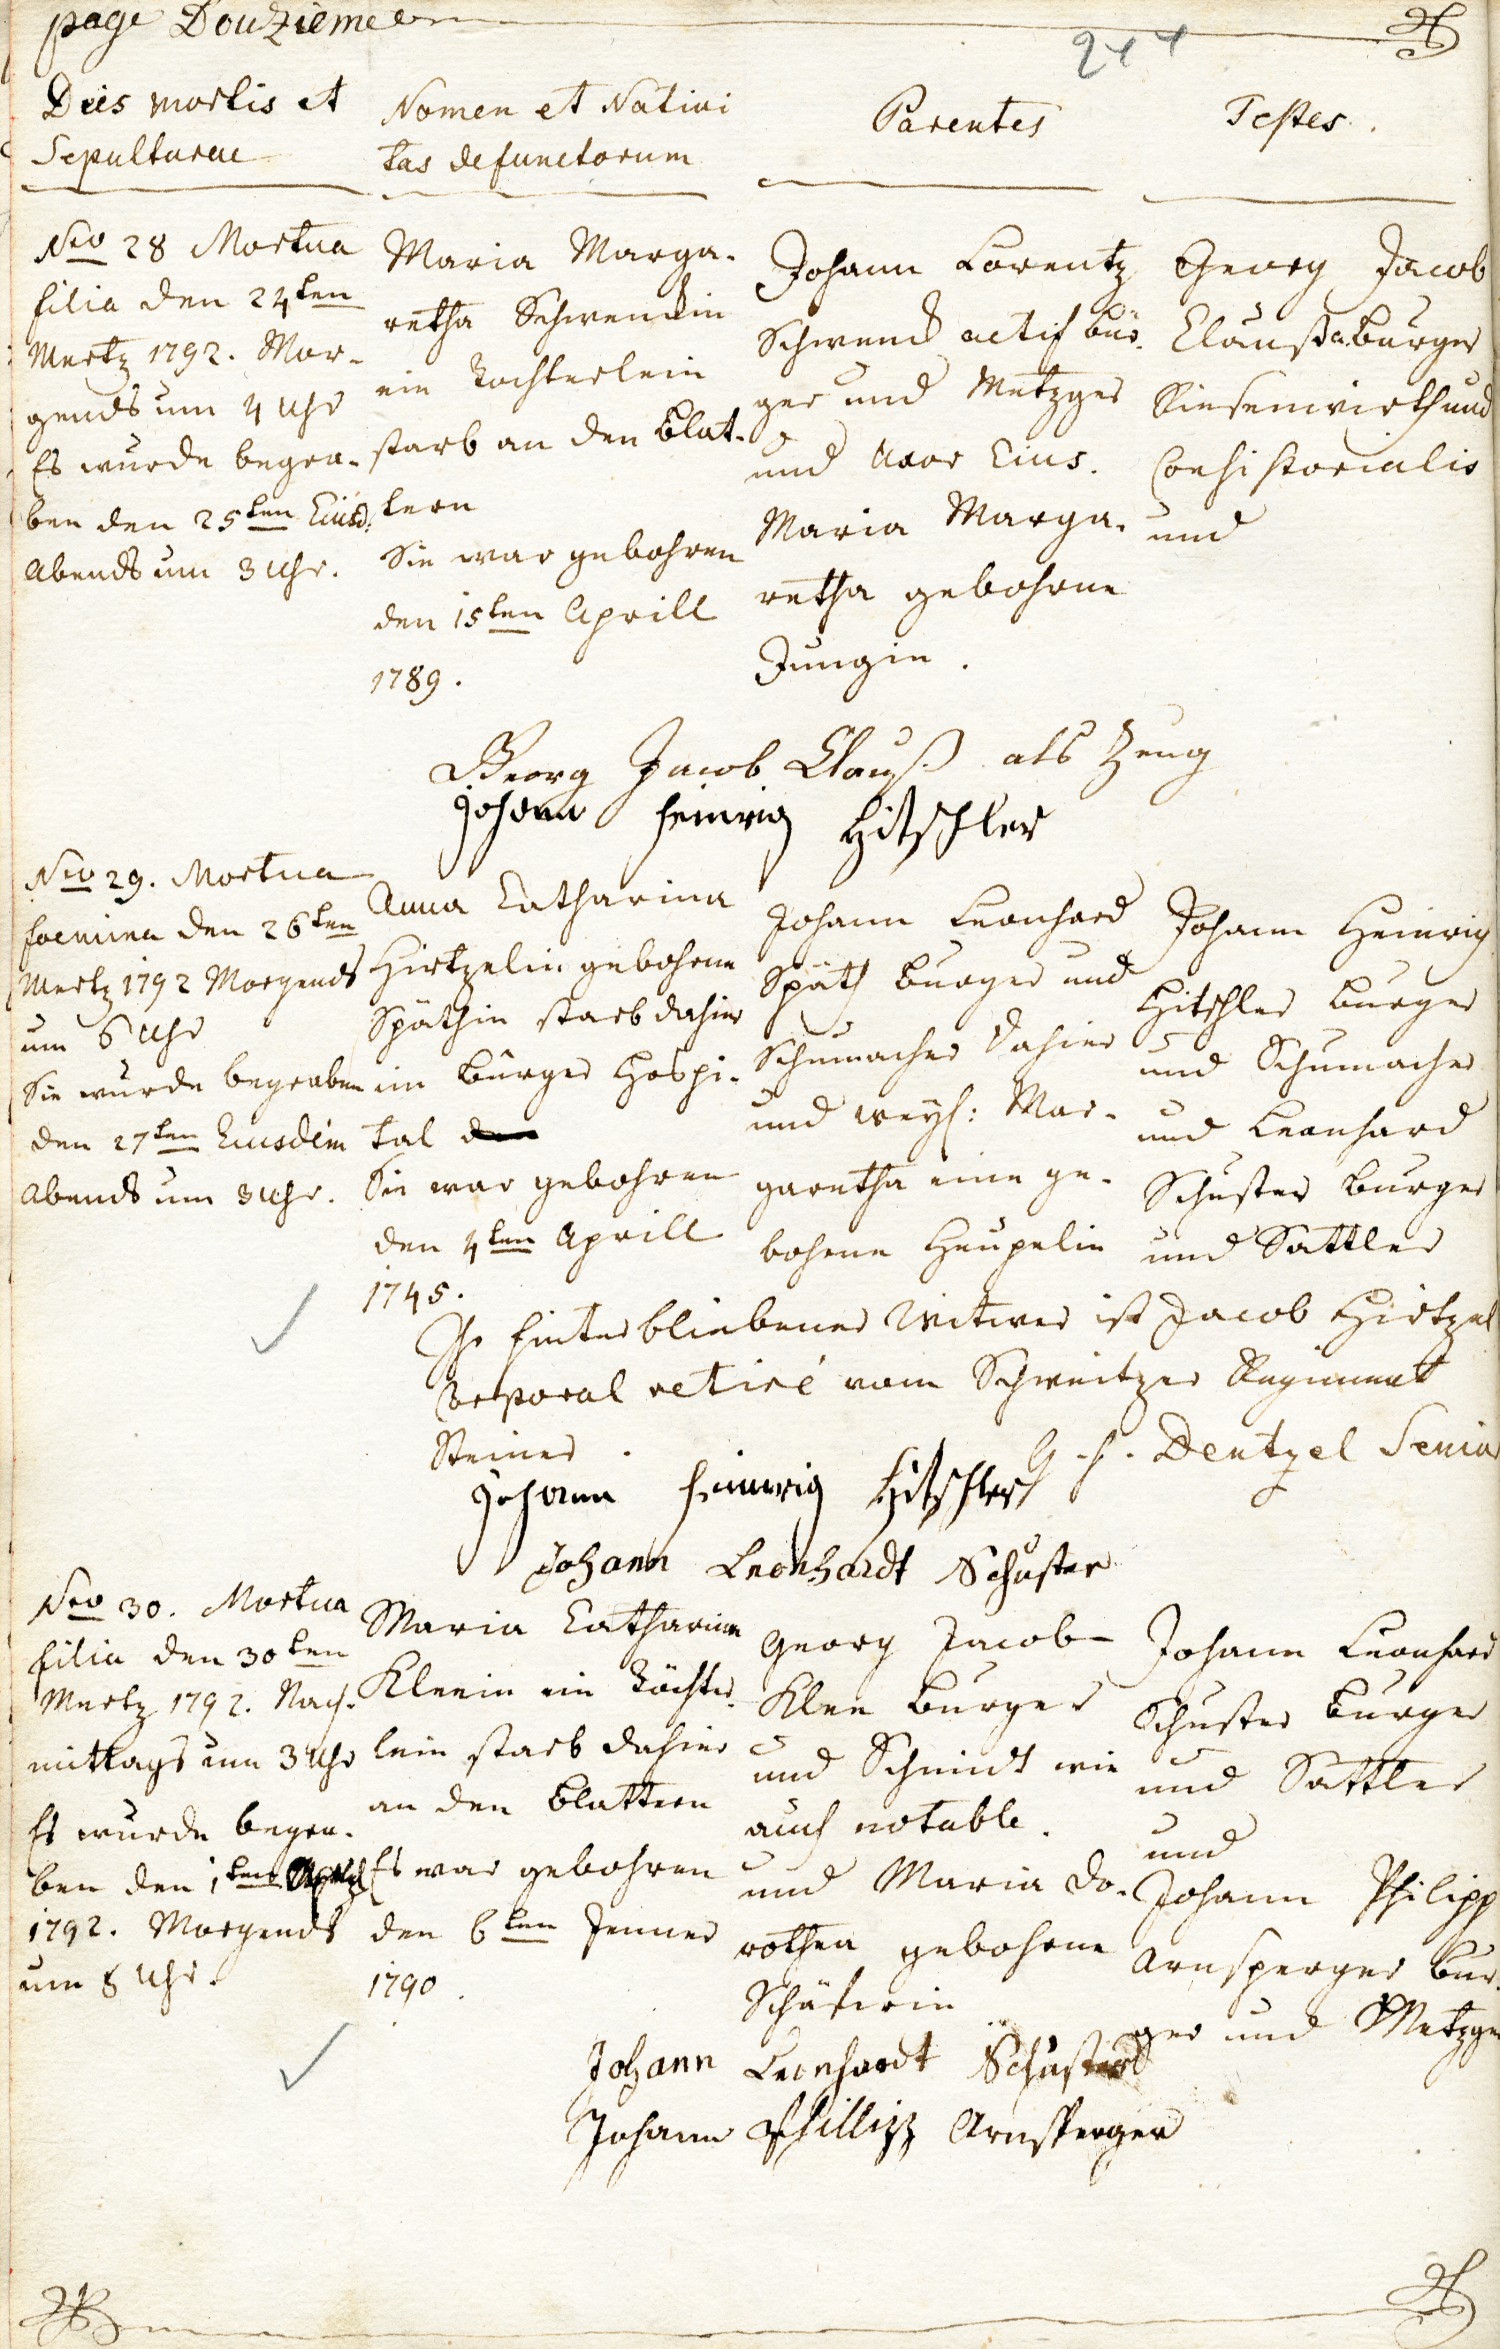 page Douzieme
244
Dies mortis et
Sepulturae
Nomen et Nativi
tas defunctorum
Parentes
Testes.
Nro 28 Mortua
filia den 24ten
Mertz 1792. Mor-
gends um 4 Uhr
Es wurde begra-
ben den 25ten Eiusd:
Abends um 3 Uhr.
Maria Marga-
retha Schwendin
ein Tochterlein
starb an den Blat-
tern
Sie war gebohren
den 15ten Aprill
1789.
Johann Lorentz
Schwend actif bür-
ger und Metzger
und Uxor Eius.
Maria Marga-
retha gebohrne
Jungin.
Georg Jacob
Clauß a. Burger
Riesenwirth und
Consistorialis
und
Georg Jacob Clauß als Zeug
Johann Heinrig Hitschler
Nro 29. Mortua
foemina den 26ten
Mertz 1792 Morgends
um 6 Uhr
Sie wurde begraben
den 27ten Eiusdem
Abends um 3 Uhr.
Anna Catharina
Hirtzelin gebohrne
Späthin starb dahier
im Bürger Hospi-
tal
Sie war gebohren
den 4ten Aprill
1745.
Johann Leonhard
Späth Burger und
Schumacher dahier
und weyl: Mar-
garetha eine ge-
bohrne Heupelin
Johann Heinrig
Hitschler Burger
und Schumacher
und Leonhard
Schuster Burger
und Sattler
Ihr hinterbliebener Witwer ist Jacob Hirtzel
Corporal retiré vom Schweitzer Regiment
Steiner.
G. F. Dentzel Senior
Johann Heinrig Hitschler
Johann Leonhardt Schuster
Nro 30. Mortua
filia den 30ten
Mertz 1792. Nach-
mittags um 3 Uhr
Es wurde begra-
ben den 1ten April
1792. Morgends
um 8 Uhr.
Maria Catharina
Kleein ein Töchter-
lein starb dahier
an den Blattern
Es war gebohren
den 6ten Jenner
1790.
Georg Jacob
Klee Burger
und Schmidt wie
auch notable.
und Maria Do-
rothea gebohrne
Schäferin
Johann Leonhard
Schuster Burger
und Sattler
und
Johann Philipp
Arnsperger Bur-
ger und Metzger
Johann Leonhardt Schuster
Johann Phillipp Arnsperger